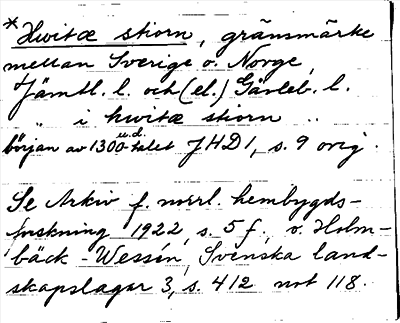 * Hwitæ stiorn, gränsmärke
mellan Sverige o. Norge,
Jämtl. l. och (el.) Gävleb. l.
„ i hwitæ stiorn ..
början av 1300-talet u.d. JHD 1, s. 9 orig.
Se Arkiv f. norrl. hembygds-
forskning 1922, s. 5 f, o. Holm-
bäck - Wessén, Svenska land-
skapslagar 3, s. 412 not 118.